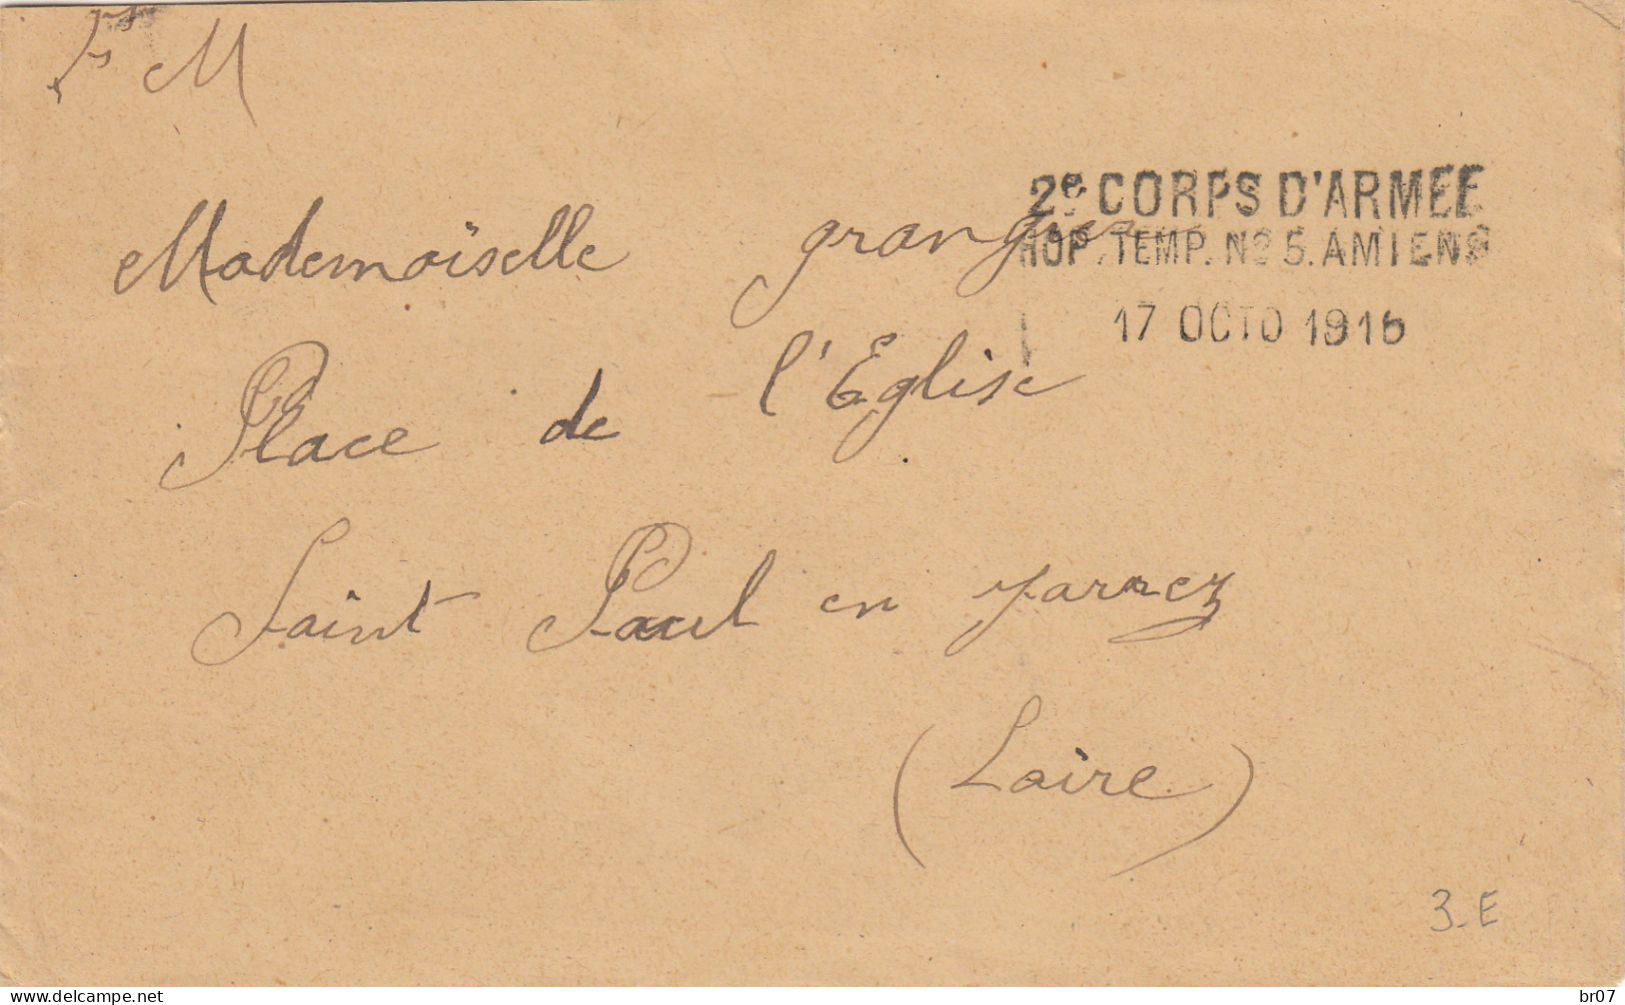 F M
2e CORPS D'ARMEE
HOP. TEMP. No 5. AMIENS
17 OCTO 1916
Mademoiselle grangier
Place de l'Eglise
Saint Paul en Jarrez
(Loire)
3-E
delcampe.net
br07